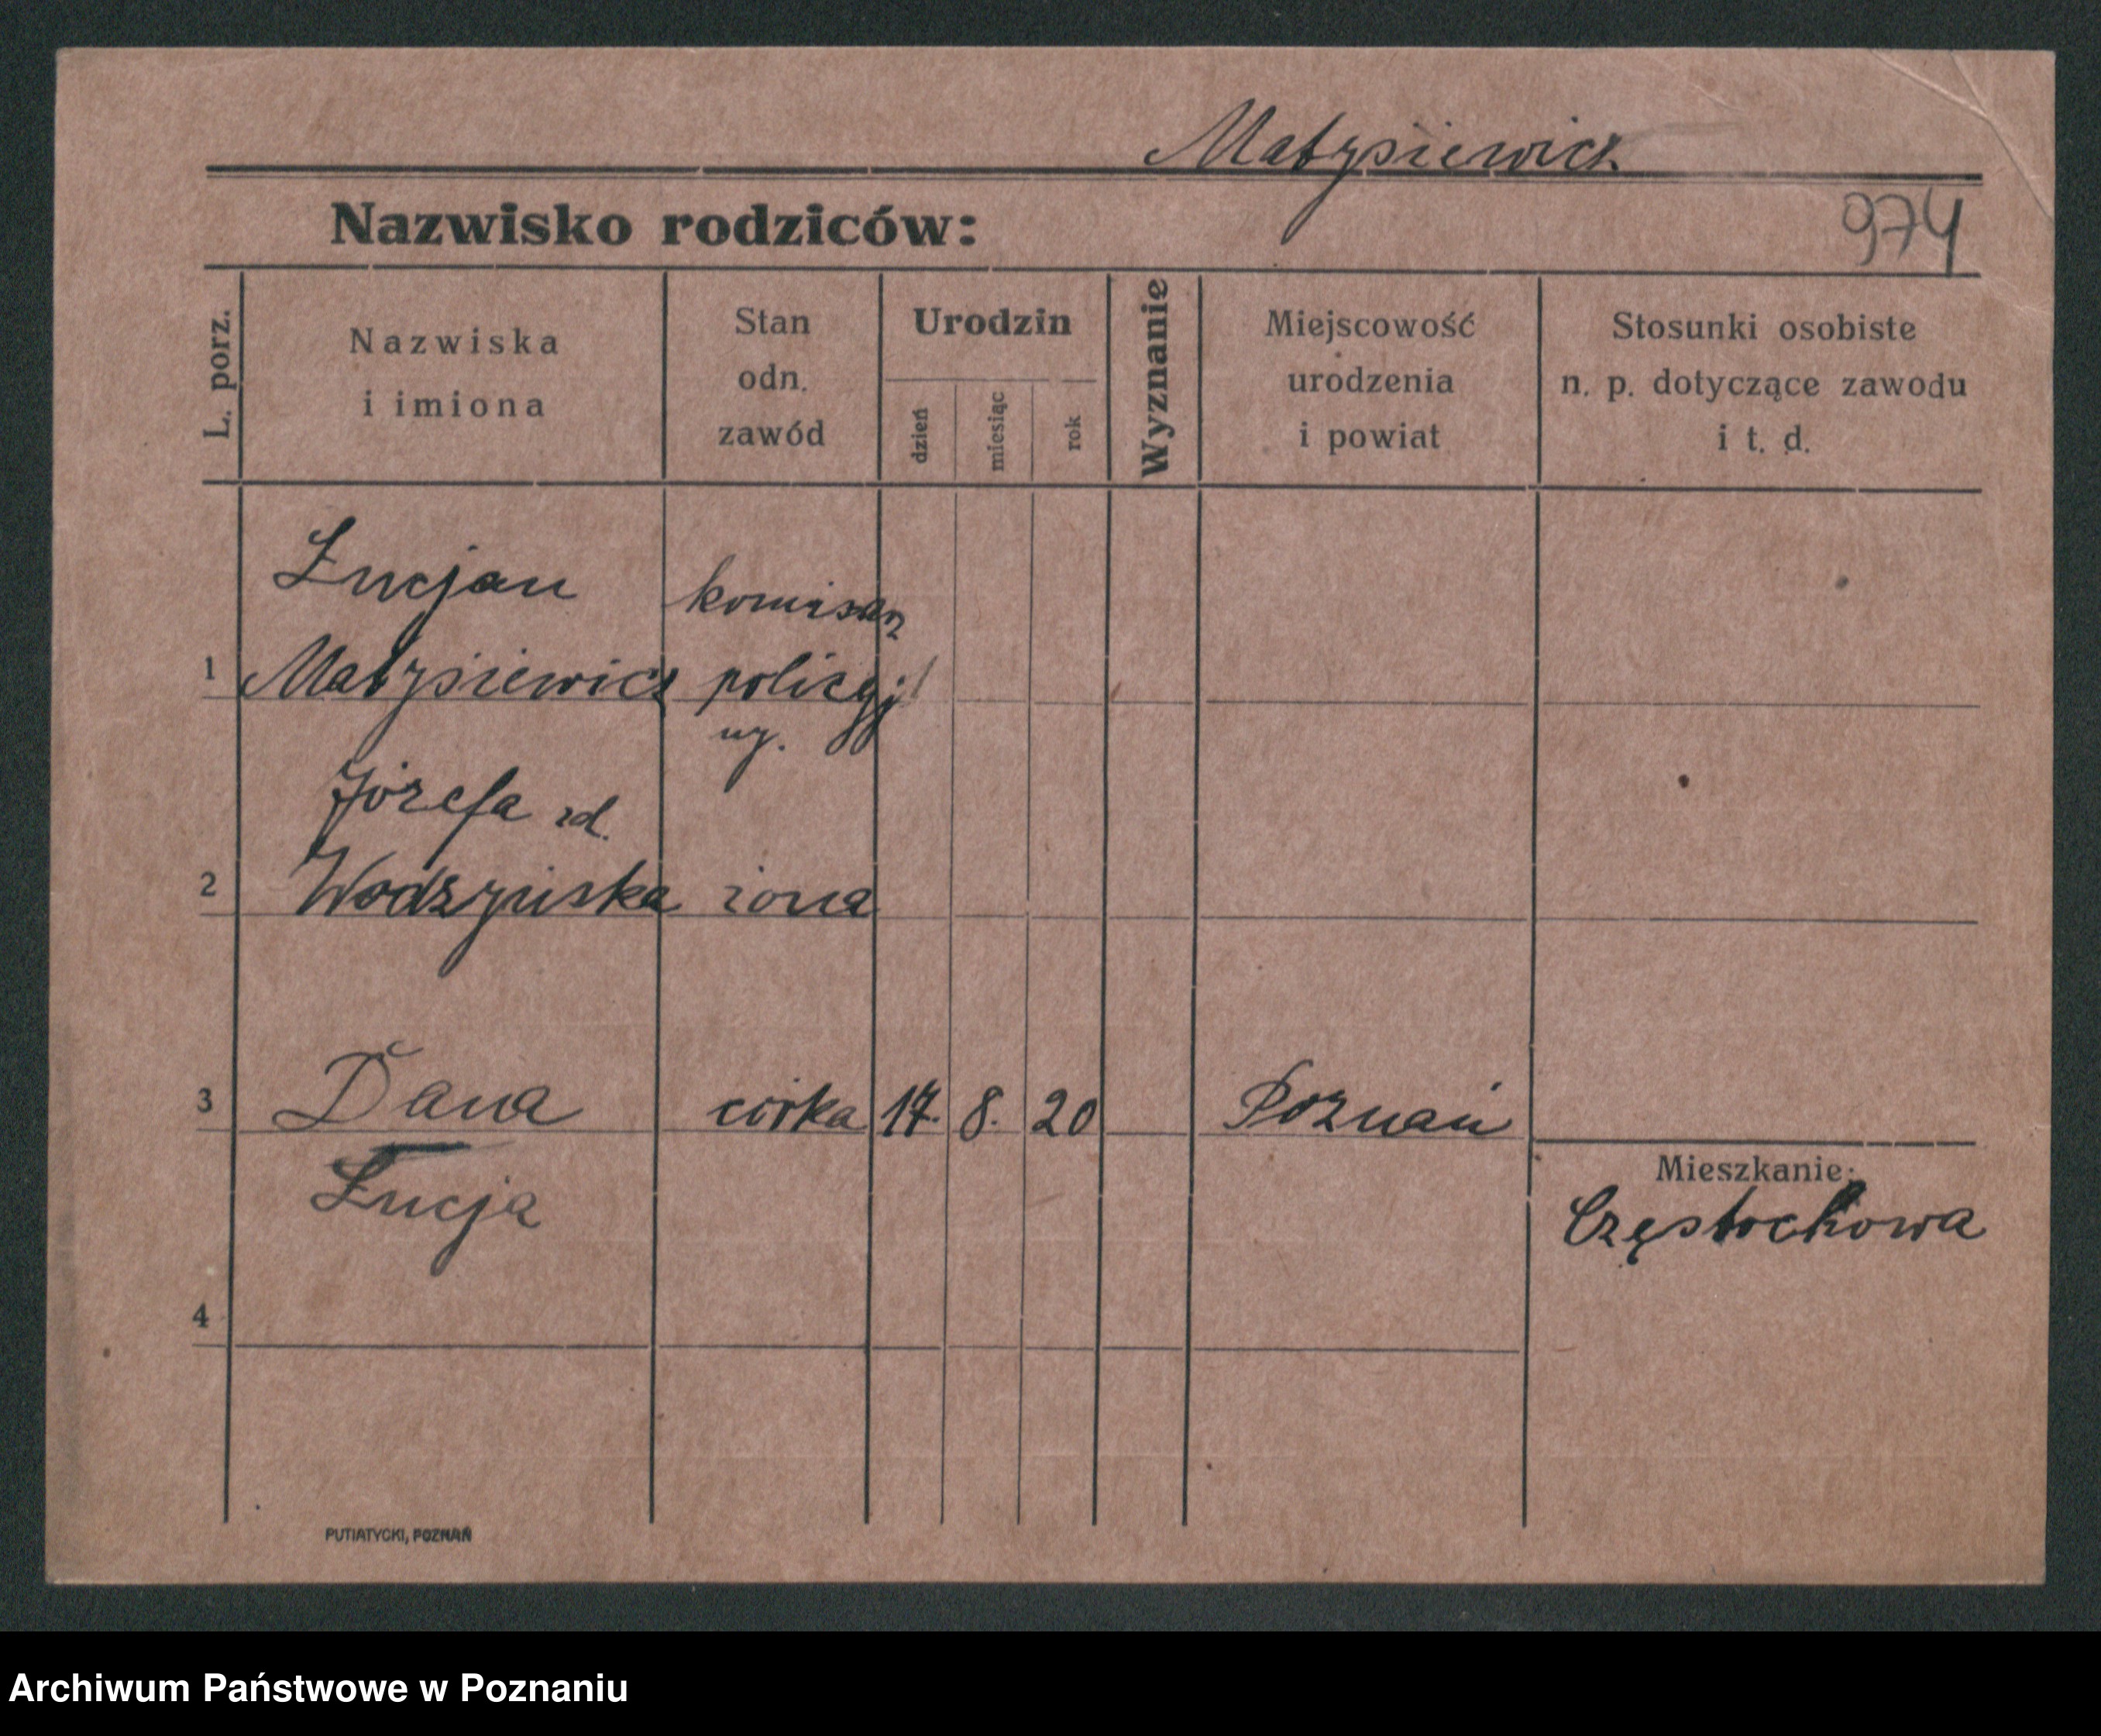 Matysiewicz
Nazwisko rodziców:
974
L. porz.
Nazwiska
i imiona
Stan
odn.
zawód
Urodzin
dzień
miesiąc
rok
Wyznanie
Miejscowość
urodzenia
i powiat
Stosunki osobiste
n. p. dotyczące zawodu
i t. d.
Łucjan komisarz
1 Matysiewicz policyj
Józefa zd.
2 Wodzyńska żona
3 Dana córka 17. 8. 20 Poznań
Mieszkanie:
Łucja Częstochowa
4
PUTIATYCKI, POZNAŃ
Archiwum Państwowe w Poznaniu